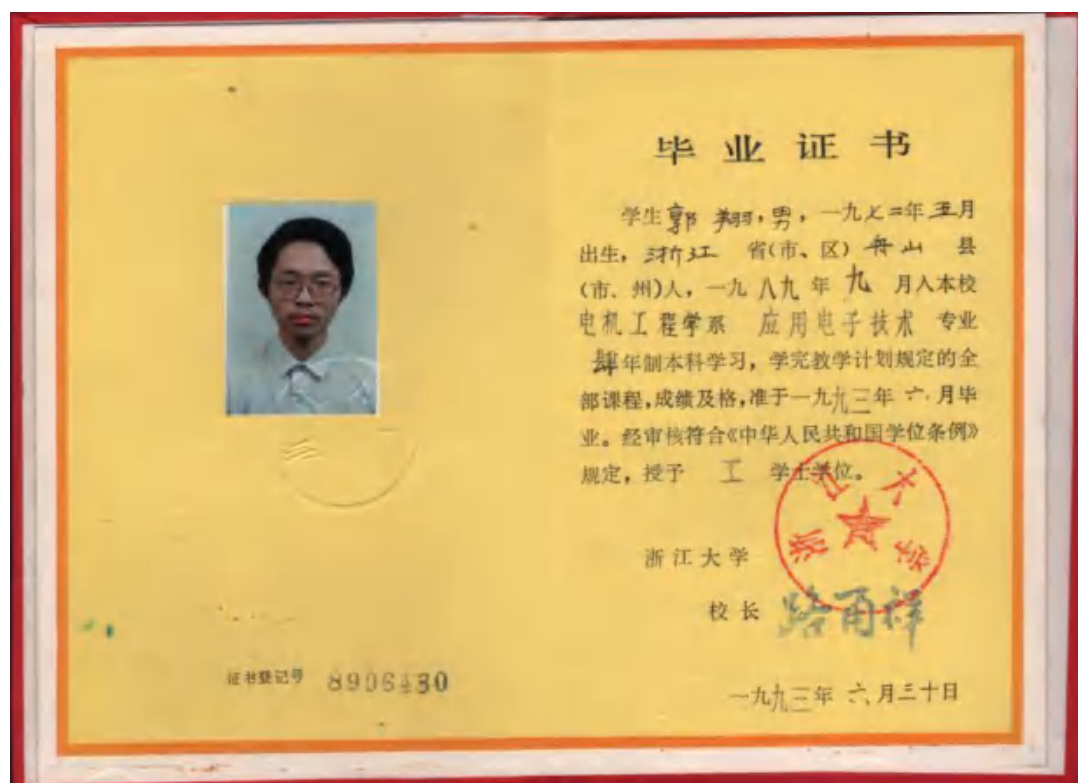 毕业证书
学生郭翔，男，一九七二年五月
出生，浙江 省(市、区) 舟山 县
(市、州)人，一九八九年九月入本校
电机工程学系 应用电子技术 专业
肆年制本科学习，学完教学计划规定的全
部课程，成绩及格，准于一九九三年六月毕
业。经审核符合《中华人民共和国学位条例》
规定，授予 工 学士学位。
浙江大学
浙江大学
校长 路甬祥
证书登记号
一九九三年六月三十日